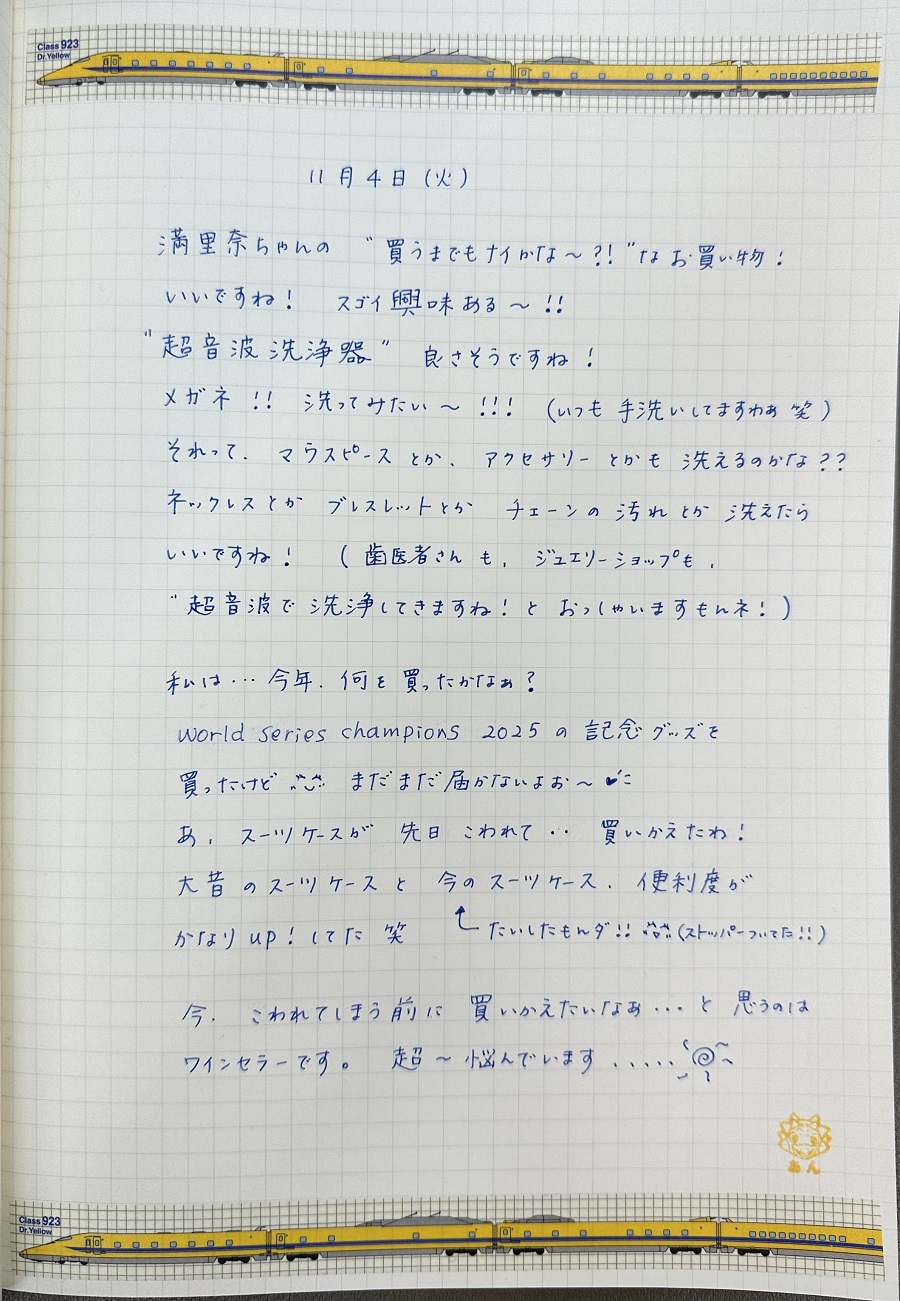 Class 923
Dr.Yellow
11月4日(火)
満里奈ちゃんの "買うまでもナイかな〜?!"な お買い物!
いいですね! スゴイ興味ある〜!!
"超音波洗浄器" 良さそうですね!
メガネ!! 洗ってみたい〜!!! (いつも 手洗いしてますわぁ 笑)
それって、マウスピースとか、アクセサリーとかも 洗えるのかな??
ネックレスとか ブレスレットとか チェーンの 汚れとか 洗えたら
いいですね! (歯医者さんも、ジュエリーショップも、
"超音波で洗浄してきますね!と おっしゃいますもんネ!)
私は… 今年、何を買ったかなぁ?
World Series Champions 2025 の 記念グッズを
買ったけど まだまだ届かないよぉ〜
あ、スーツケースが 先日 こわれて‥ 買いかえたわ!
大昔のスーツケースと 今のスーツケース、便利度が
かなりup!してた 笑 たいしたもんダ!! (ストッパーついてた!!)
今、こわれてしまう前に 買いかえたいなぁ…と 思うのは
ワインセラーです。 超〜悩んでいます.....
あん
Class 923
Dr.Yellow